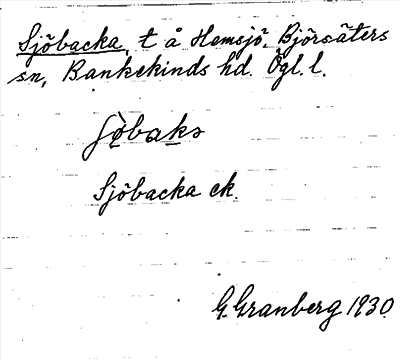 Sjöbacka, t å Hemsjö Björsäters
sn, Bankekinds hd. Ögl. l.
Sjöbacka ek.
G. Granberg 1930